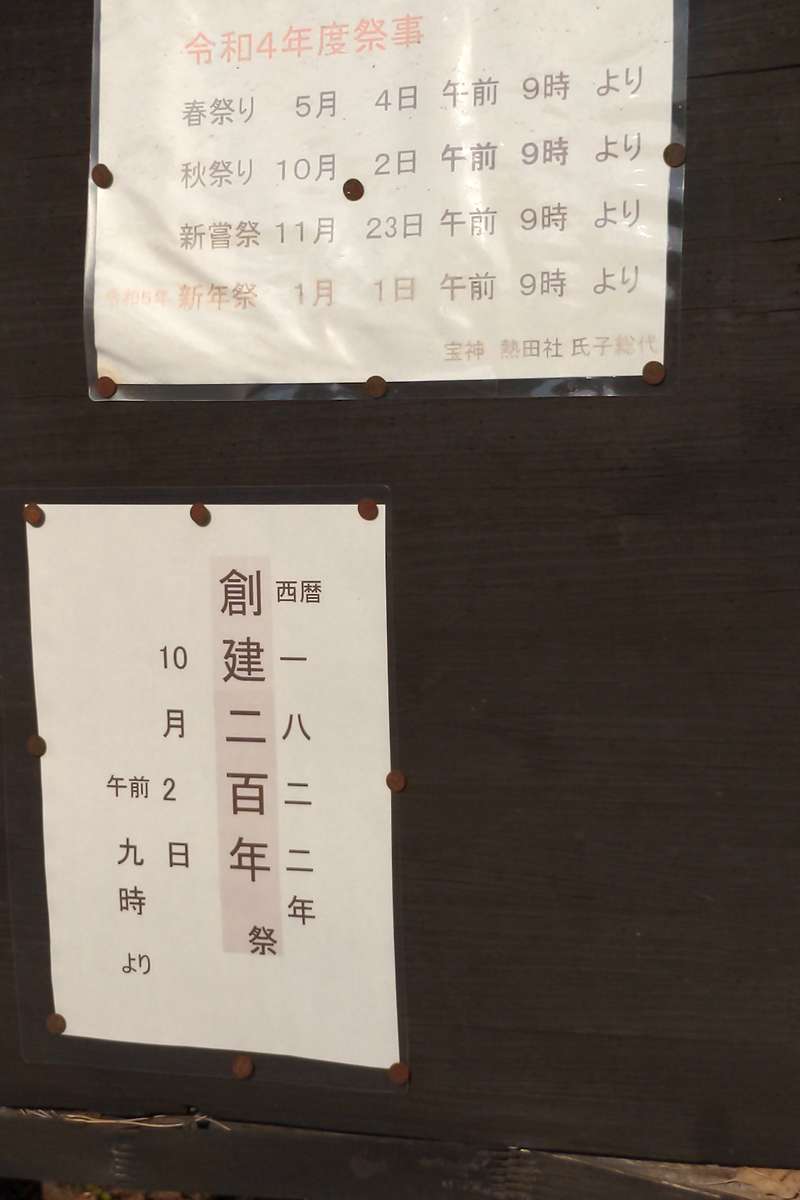 令和4年度祭事
春祭り 5月 4日 午前 9時 より
秋祭り 10月 2日 午前 9時 より
新嘗祭 11月 23日 午前 9時 より
令和5年 新年祭 1月 1日 午前 9時 より
宝神 熱田社 氏子総代
西暦一八二二年
創建二百年祭
10月2日
午前九時より